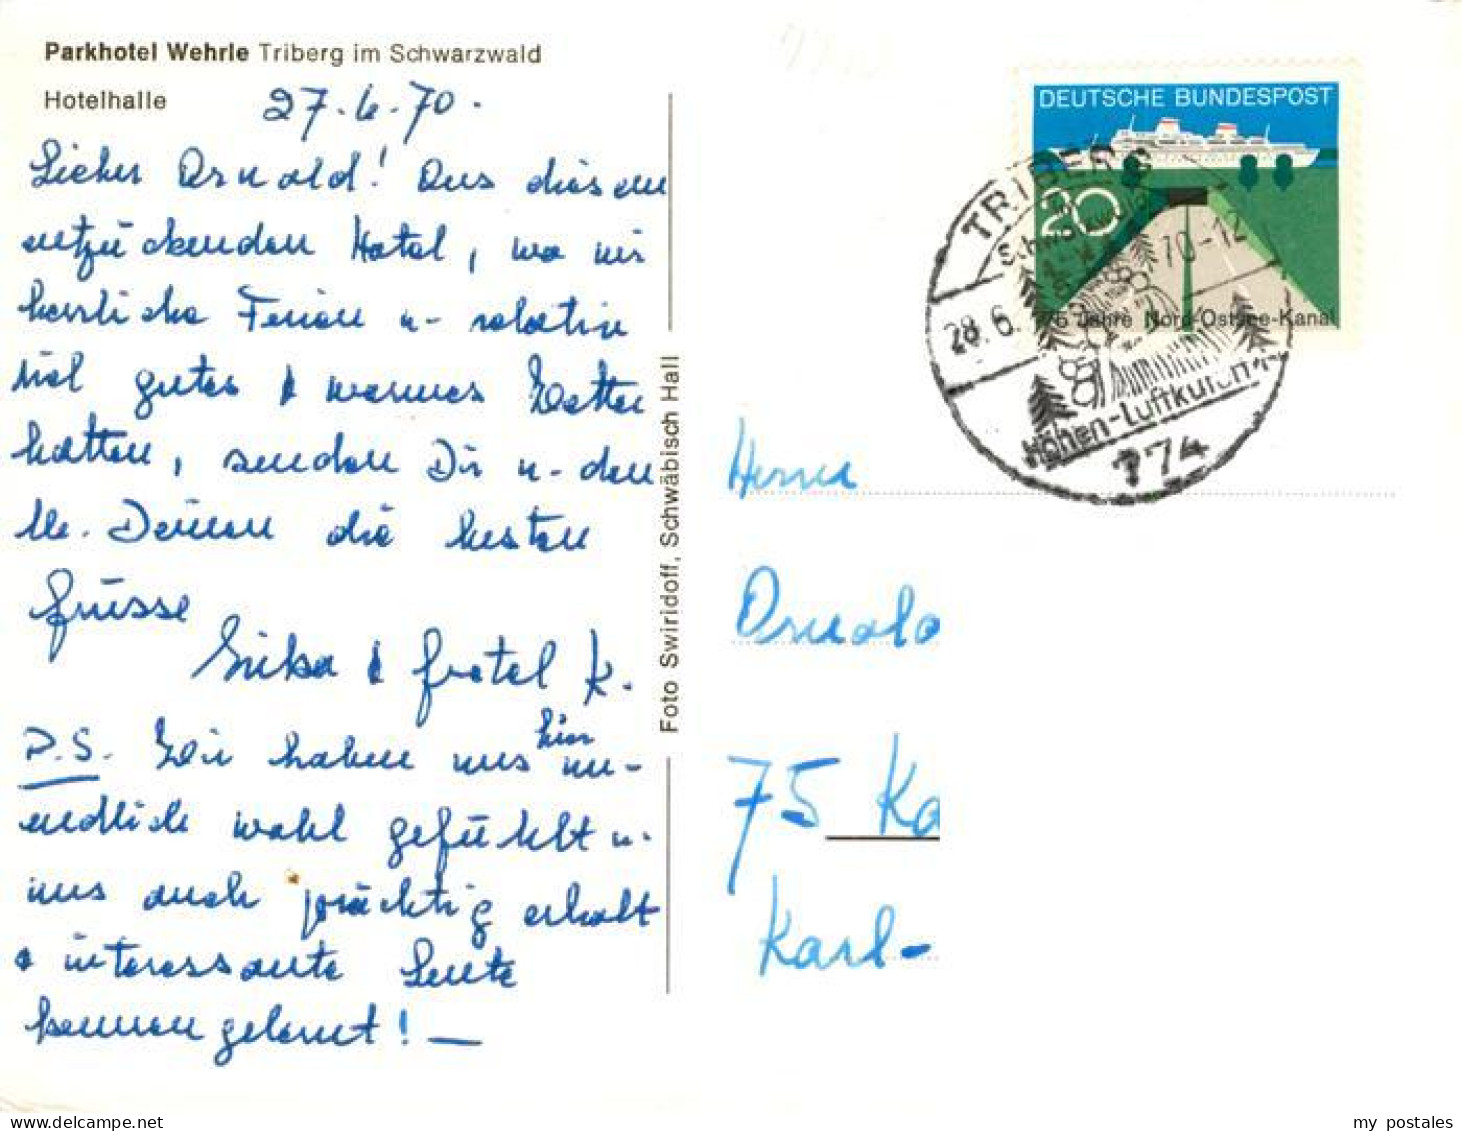 Parkhotel Wehrle Triberg im Schwarzwald
Hotelhalle
27.6.70.
Lieber Arnold! Aus diesem
entzückenden Hotel, wo wir
herrliche Ferien u- relativ
viel gutes & warmes Wetter
hatten, senden Dir u- den
lb. Deinen die besten
Grüsse
Erika & Gretel K.
P.S. Wir haben uns hier un-
endlich wohl gefühlt u-
uns auch prächtig erholt
& interessante Leute
kennen gelernt! —
Foto Swiridoff, Schwäbisch Hall
DEUTSCHE BUNDESPOST
20
75 Jahre Nord-Ostsee-Kanal
TRIBERG
Schwarzwald
28.6. 10-12
Höhen-Luftkurort
774
Herrn
Arnold
75 Ka
Karl-
my postales